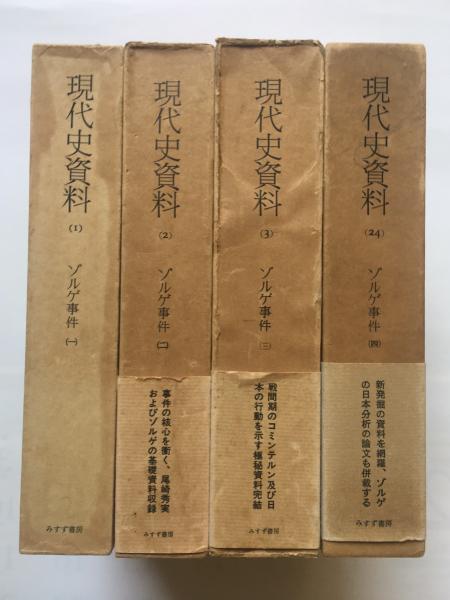 現代史資料
(1)
ゾルゲ事件
(一)
みすず書房
現代史資料
(2)
ゾルゲ事件
(二)
事件の核心を衝く、尾崎秀実
およびゾルゲの基礎資料収録
みすず書房
現代史資料
(3)
ゾルゲ事件
(三)
戦間期のコミンテルン及び日
本の行動を示す極秘資料完結
みすず書房
現代史資料
(24)
ゾルゲ事件
(四)
新発掘の資料を網羅、ゾルゲ
の日本分析の論文も併載する
みすず書房